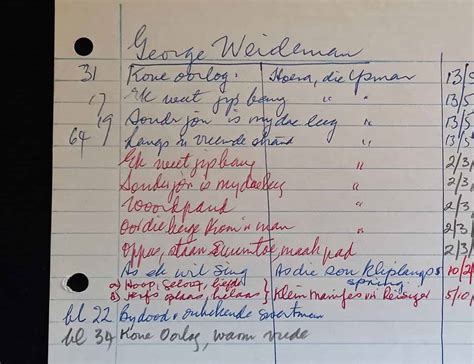 George Weideman
31 Koue oorlog. Hoera, die Ysman 13/5
17 Ek weet jy's bang " " 13/5
19 Sonder jou is my dae leeg " " 13/5
64 Langs 'n vreemde strand " " 13/5
Ek weet jy's bang " 2/3
Sonder jou is my dae leeg " 2/3
" 2/3
Oor die berge kom 'n man " 2/3
Oppas, staan maak pad " 2/3
As ek wil sing As die son kliplangs spring. 10/2
a) Hoop, geloof, liefde
b) Herfs helaas } Klein mannetjies 5/10
bl 22 By dood v onbekende sportman
bl 34 Koue Oorlog, warm vrede